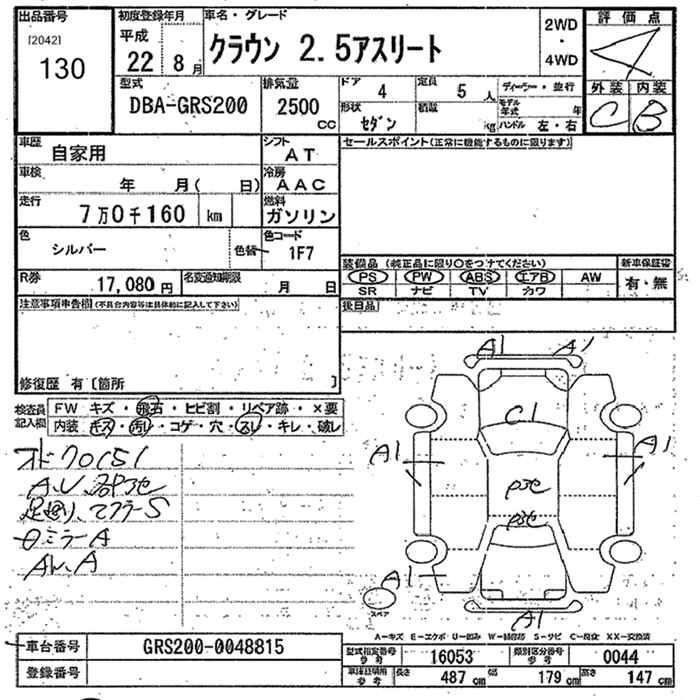 出品番号
[2042]
130
初度登録年月
平成
22 8月
車名・グレード
クラウン 2.5アスリート
2WD
・
4WD
評価点
4
外装 内装
C B
型式
DBA-GRS200
排気量
2500
cc
ドア 4
定員 5 人
形状 セダン
積載 kg
ディーラー・並行
モデル年式 年
ハンドル 左・右
車歴 自家用
シフト AT
車検 年 月( 日)
冷房 AAC
走行 7万0千160 km
燃料 ガソリン
色 シルバー
色替
色コード 1F7
R券 17,080円
名変通知期限 月 日
セールスポイント(正常に機能するものに限ります)
装備品(純正品に限り○をつけてください)
新車保証書
PS PW ABS エアB AW
SR ナビ TV カワ
有・無
後日品
注意事項申告欄(不具合内容等は具体的に記入して下さい)
修復歴 有〔箇所 〕
検査員記入欄
FW キズ・飛石・ヒビ割・リペア跡・×要
内装 キズ・汚れ・コゲ・穴・スレ・キレ・破レ
A1 A1
C1
A1 A1
A1
A1
スペア
A-キズ E-エクボ U-凹み W-補修跡 S-サビ C-腐食 XX-交換済
車台番号 GRS200-0048815
登録番号
型式指定番号 参考 16053
類別区分番号 参考 0044
車検証明用 参考
長さ 487 cm
幅 179 cm
高さ 147 cm